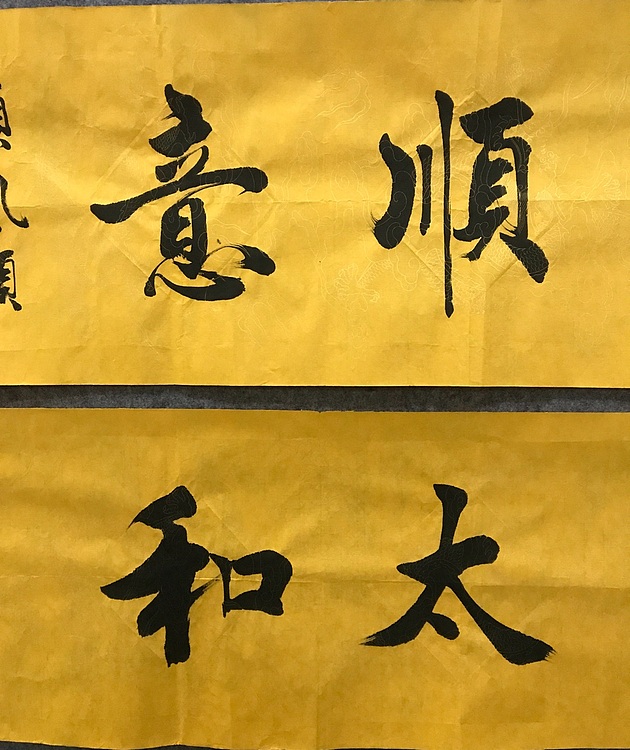 順意
太和